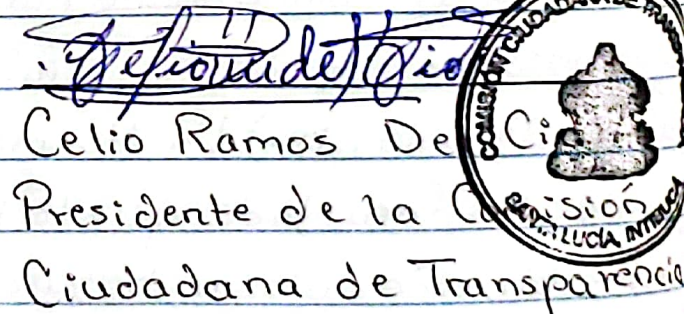 Celio Ramos De Ci
Presidente de la Comisión
Ciudadana de Transparencia
COMISIÓN CIUDADANA DE TRANSP
SANTA LUCÍA INTIBUCÁ